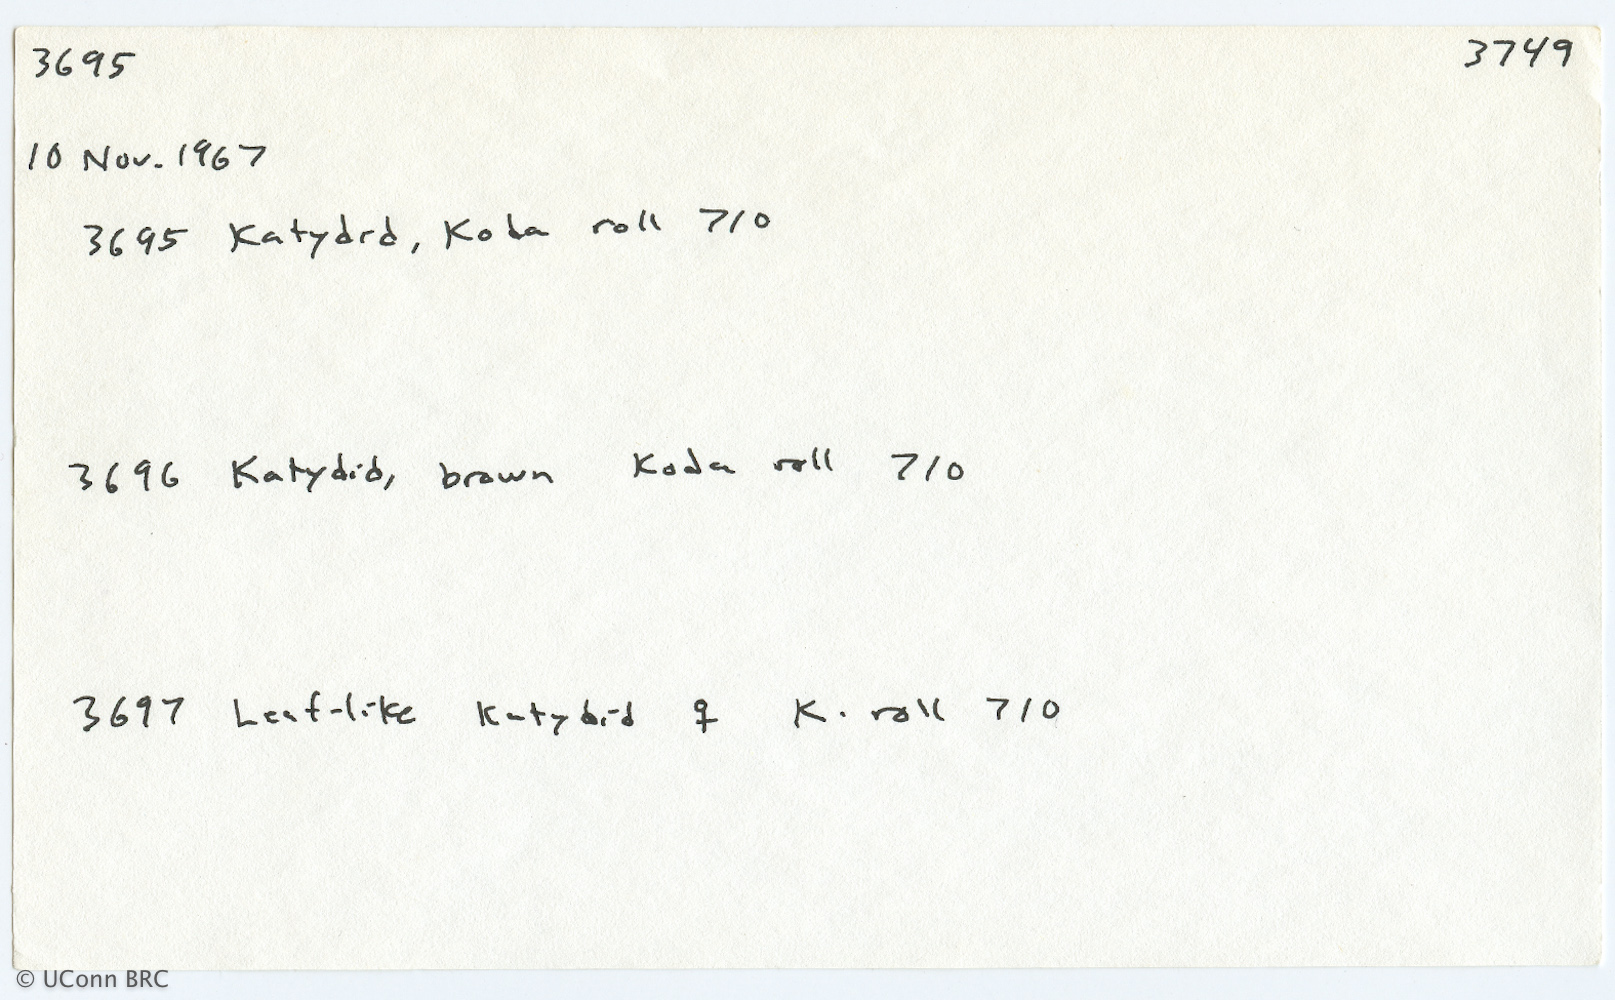 3695 3749
10 Nov. 1967
3695 Katydid, Koda roll 710
3696 Katydid, brown Koda roll 710
3697 Leaf-like Katydid ♀ K. roll 710
© UConn BRC